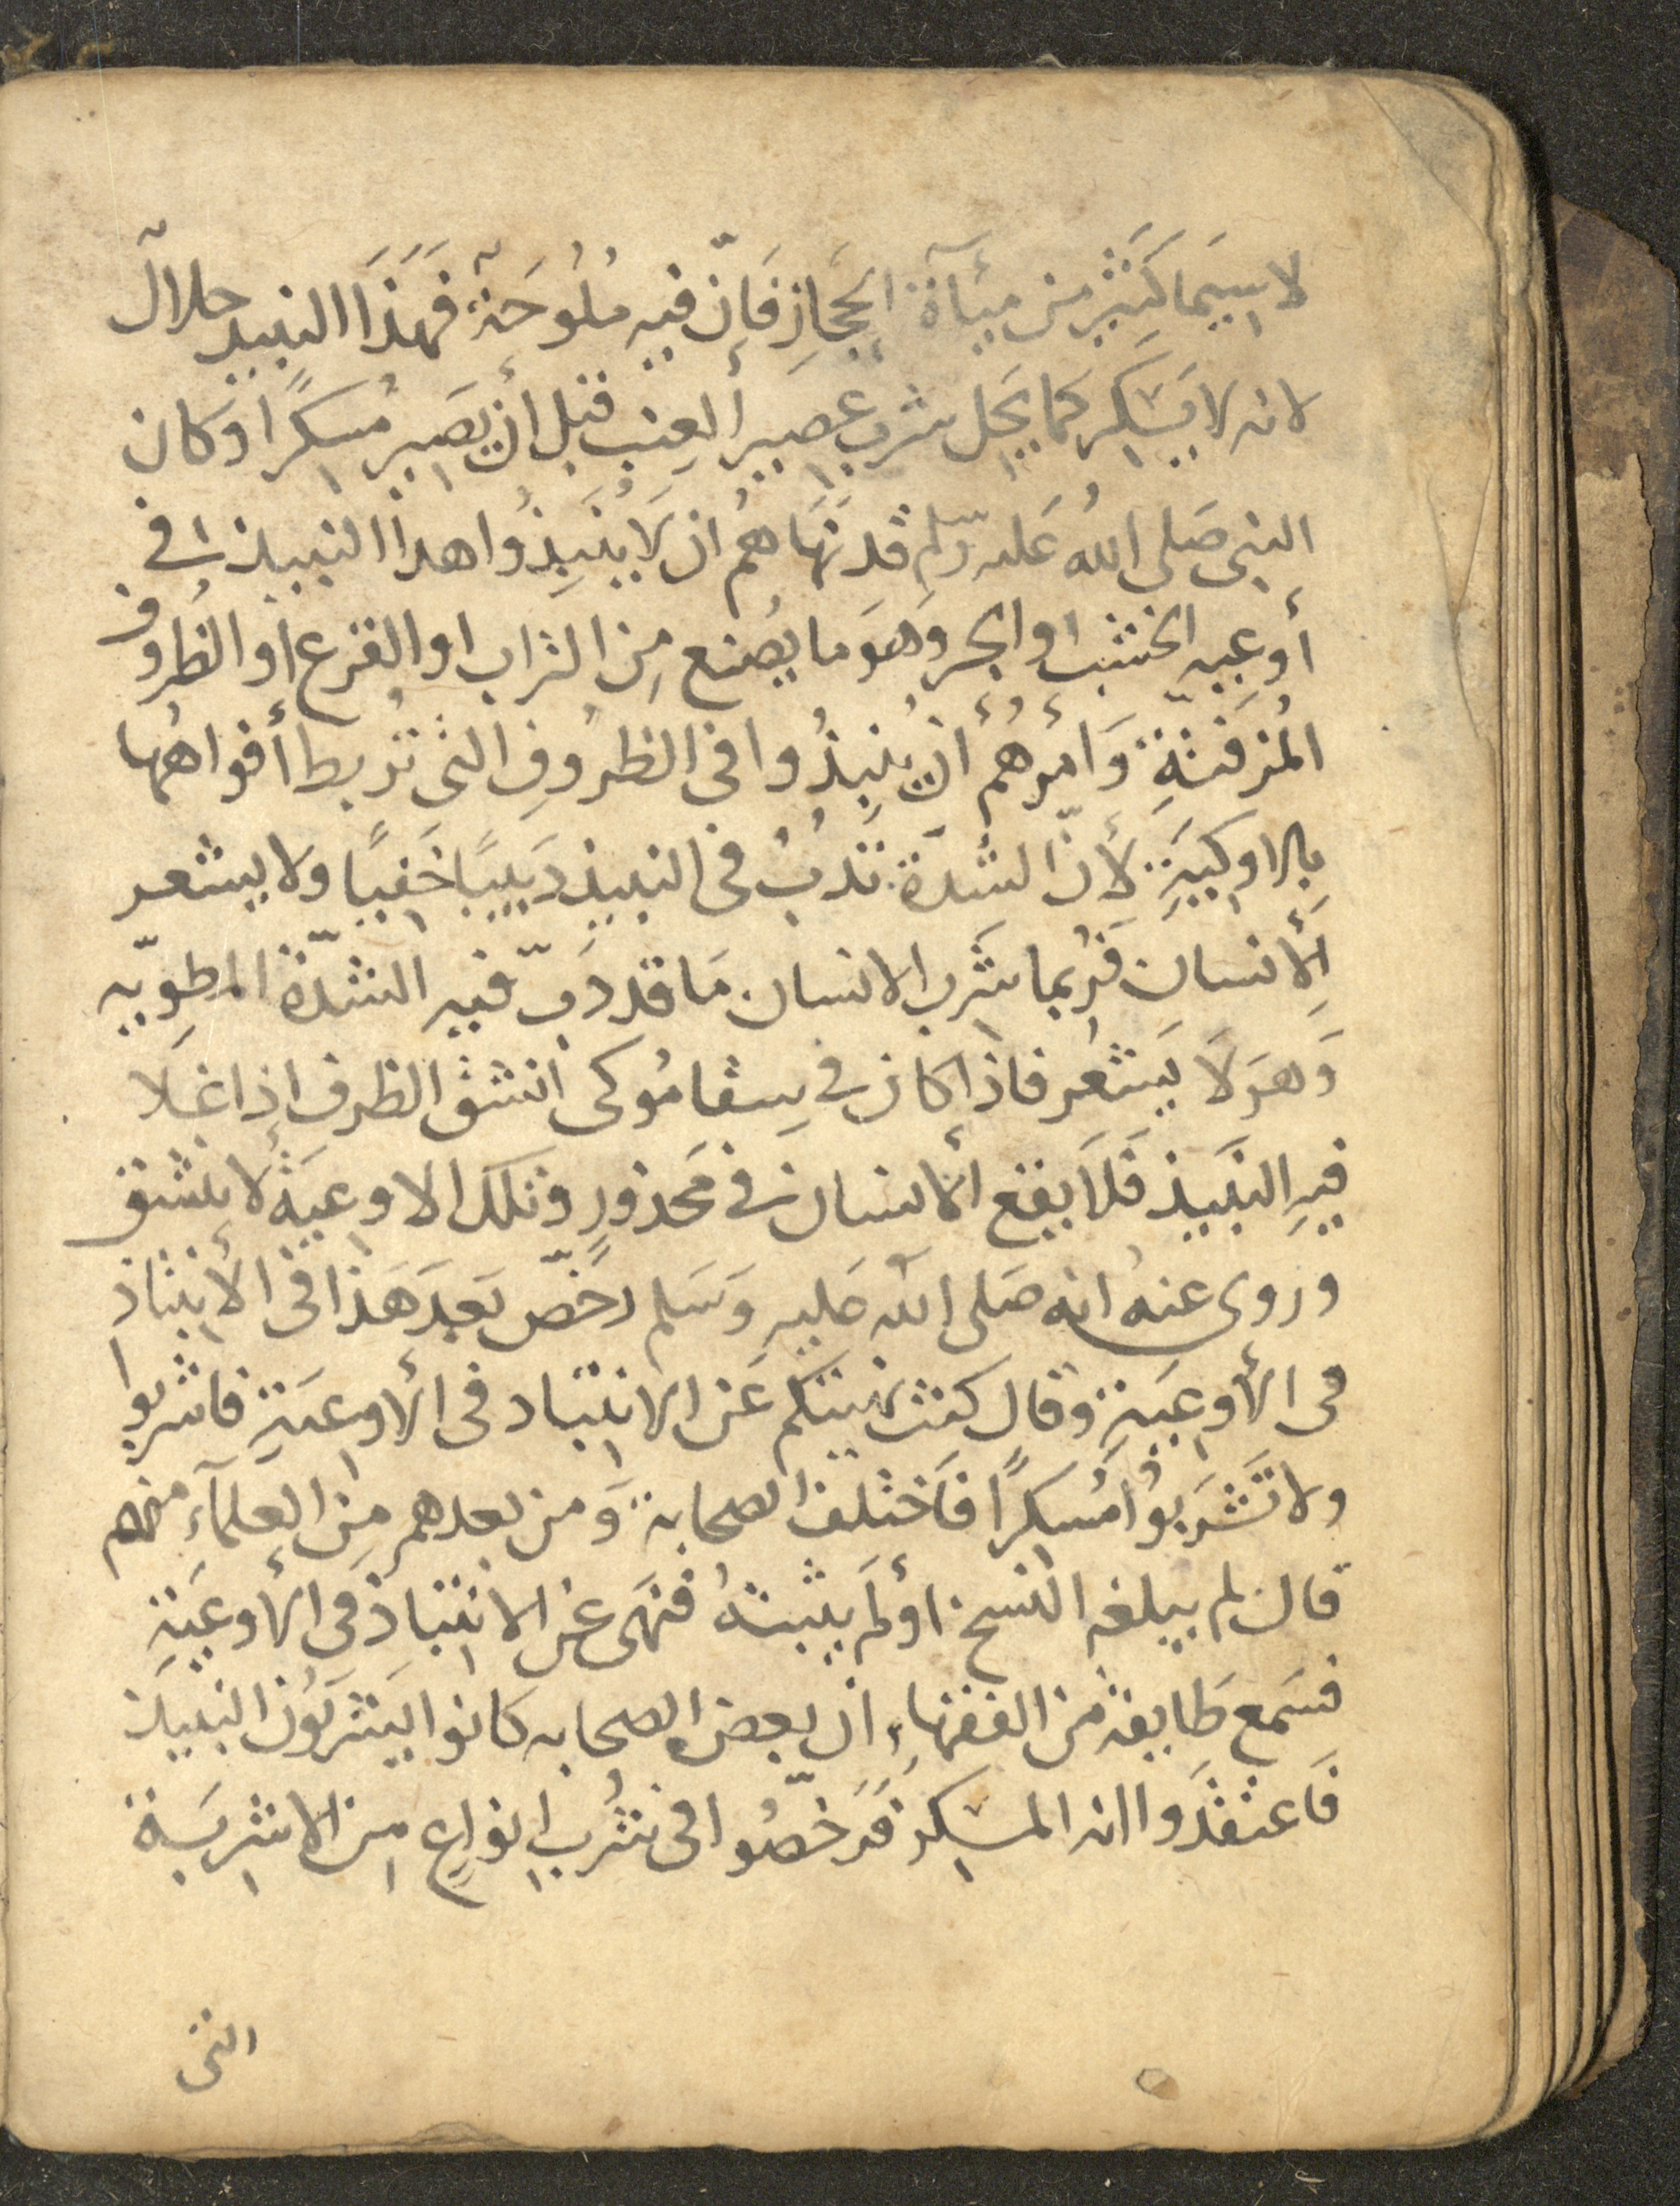 لاسيما كثير من مياه الحجاز فان فيه ملوحة فهذا النبيذ حلال
لانه لا يسكر كما يحل شرب عصير العنب قبل أن يصير مسكرا وكان
النبى صلى الله عليه وسلم قد نهاهم ان لا ينبذوا هذا النبيذ في
أوعيه الخشب او الجر وهو ما يصنع من التراب او القرع أو الظروف
المزفتة وامرهم أن ينبذوا فى الظروف التي تربط أفواهها
بالاوكية لأن الشدة تدب فى النبيذ دبيبا خفيا ولا يشعر
الأنسان فربما شرب الانسان ما قد دب فيه الشدة المطوبه
وهو لا يشعر فاذا كان في سقا موكى انشق الظرف اذا غلا
فيه النبيذ فلا يقع الانسان في محذور وتلك الاوعية لا تنشق
وروى عنه انه صلى الله عليه وسلم رخص بعد هذا فى الأنتباذ
فى الأوعية وقال كنت نهيتكم عن الانتباد فى الأوعية فاشربوا
ولا تشربوا مسكرا فاختلف الصحابة ومن بعدهم من العلمآء منهم
قال لم يبلغه النسخ او لم يثبته فنهى عن الانتباذ فى الأوعية
فسمع طايفة من الفقهاء ان بعض الصحابه كانوا يشربون النبيذ
فاعتقدوا انه المسكر فرخصوا فى شرب انواع من الاشربة
التى